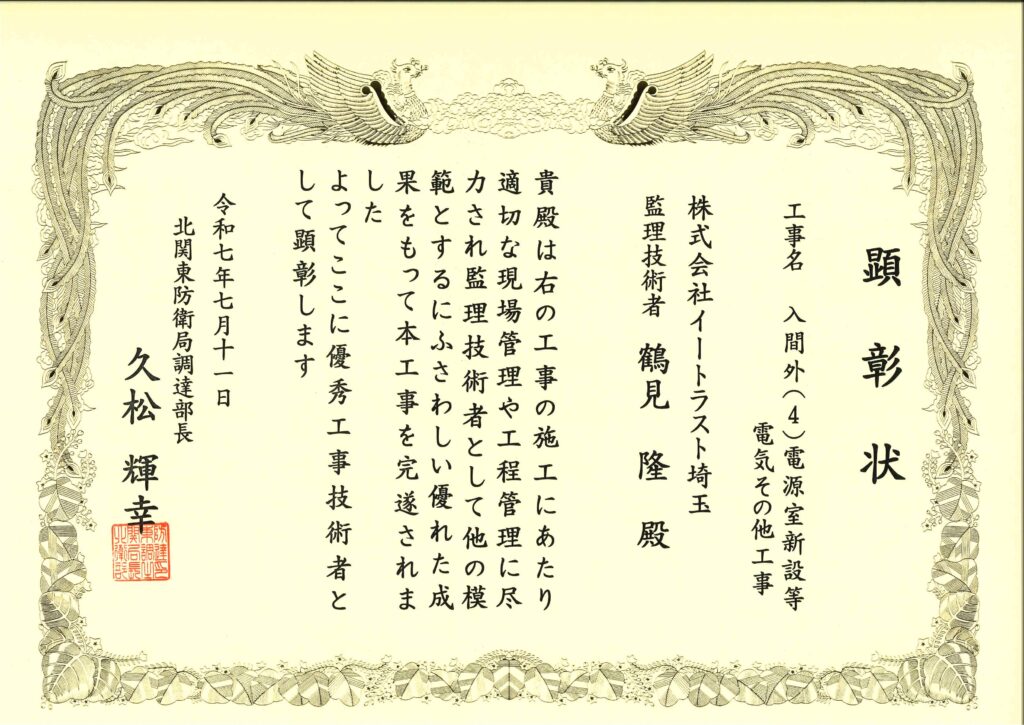 顕彰状
工事名　入間外（４）電源室新設等
電気その他工事
株式会社イートラスト埼玉
監理技術者　鶴見　隆　殿
貴殿は右の工事の施工にあたり
適切な現場管理や工程管理に尽
力され監理技術者として他の模
範とするにふさわしい優れた成
果をもって本工事を完遂されま
した
よってここに優秀工事技術者と
して顕彰します
令和七年七月十一日
北関東防衛局調達部長
久松　輝幸